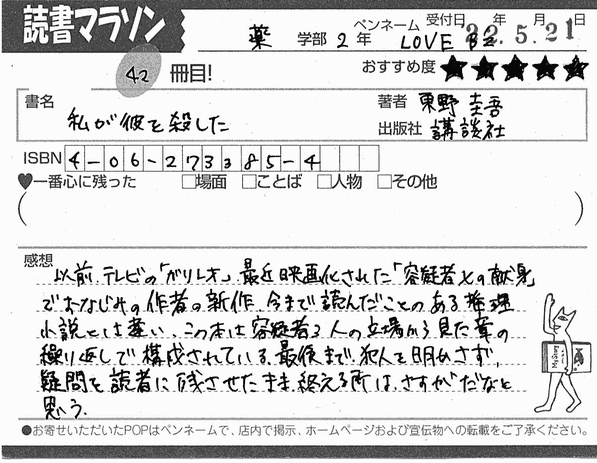 読書マラソン
薬 学部 2 年 ペンネーム LOVE B'z 受付日 22年 5.月21日
42 冊目!
おすすめ度 ★★★★★
書名
私が彼を殺した
著者 東野圭吾
出版社 講談社
ISBN 4-06-273385-4
♥一番心に残った □場面 □ことば □人物 □その他
感想
以前、テレビの「ガリレオ」、最近映画化された「容疑者Xの献身」
でおなじみの作者の新作。今まで読んだことのある推理
小説とは違い、この本は容疑者3人の立場から見た章の
繰り返しで構成されている。最後まで犯人を明かさず、
疑問を読者に残させたまま終える所は、さすがだなと
思う。
●お寄せいただいたPOPはペンネームで、店内で掲示、ホームページおよび宣伝物への転載をご了承ください。